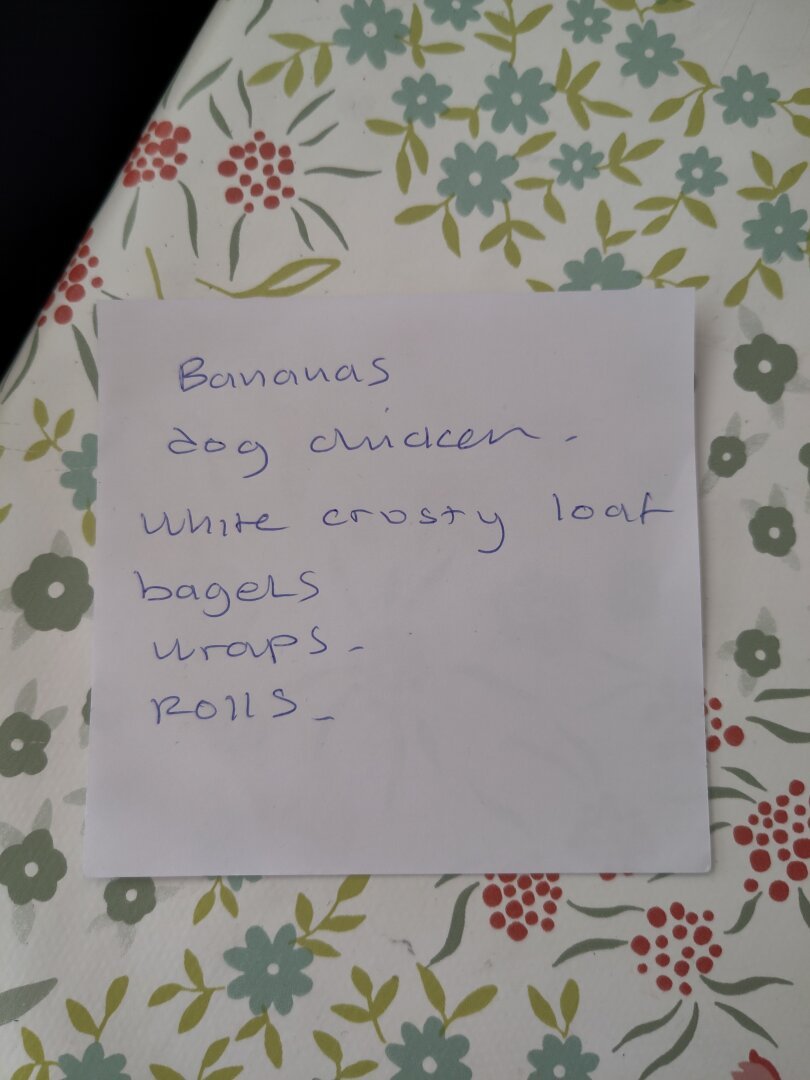 Bananas
dog chicken -
White crosty loaf
bagels
wraps -
Rolls -